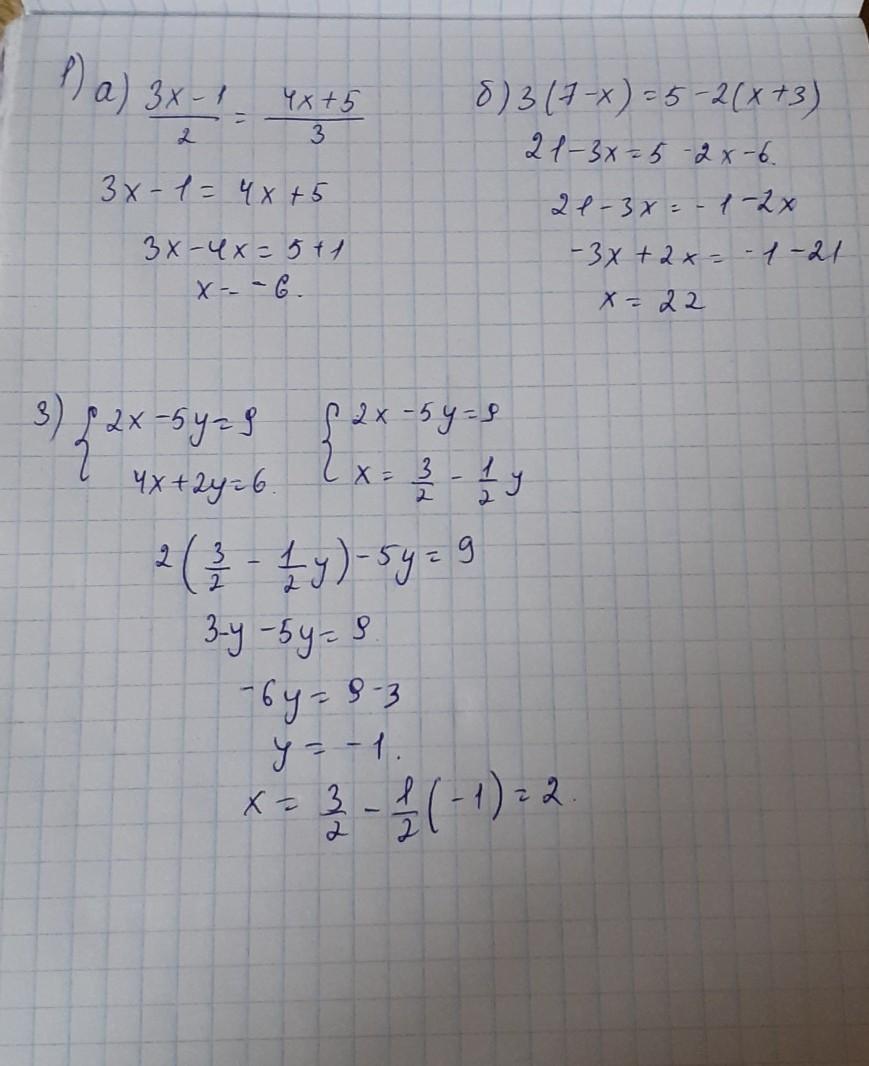 1) а) (3x-1)/2 = (4x+5)/3
3x-1 = 4x+5
3x-4x = 5+1
x = -6.
б) 3(7-x) = 5-2(x+3)
21-3x = 5-2x-6.
21-3x = -1-2x
-3x+2x = -1-21
x = 22
3) { 2x-5y=9
4x+2y=6.
{ 2x-5y=9
x = 3/2 - 1/2 y
2(3/2 - 1/2 y)-5y = 9
3-y-5y = 9.
-6y = 9-3
y = -1.
x = 3/2 - 1/2(-1) = 2.